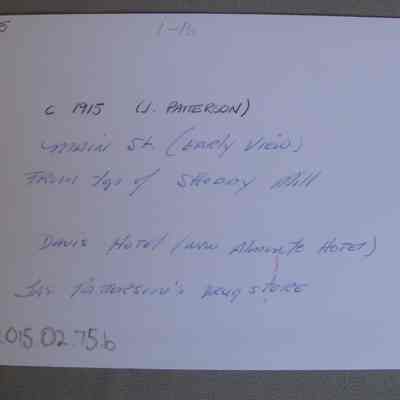 5
1-B
C 1915 (J. PATTERSON)
MAIN St. (EARLY VIEW)
From top of SHODDY Mill
DAVIS HOTEL (NOW ALMONTE HOTEL)
Jas PATTERSON'S DRUG STORE
2015.02.75b